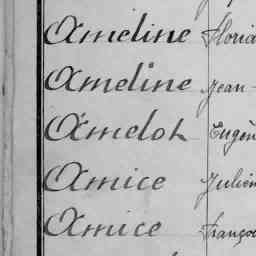 Ameline
Ameline Jean
Amelot Eugèn
Amice Julien
Amice Franço